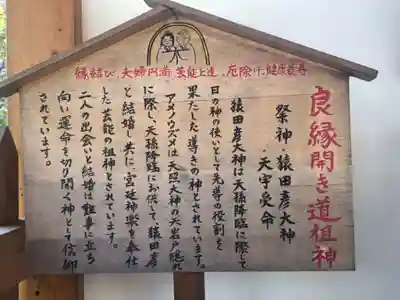 縁結び、夫婦円満、芸能上達、厄除け、健康長寿
良縁開き道祖神
祭神・猿田彦大神
・天宇受命
猿田彦大神は天孫降臨に際して
日の神の使いとして先導の役割を
果たした導きの神とされています。
アメノウズメは天照大神の天岩戸隠れ
に際し、天孫降臨にお供して猿田彦
と結婚し、共に、宮廷神楽を奉仕
した芸能の祖神とされています。
二人の出会いと結婚は難事に立ち
向い運命を切り開く神として信仰
されています。